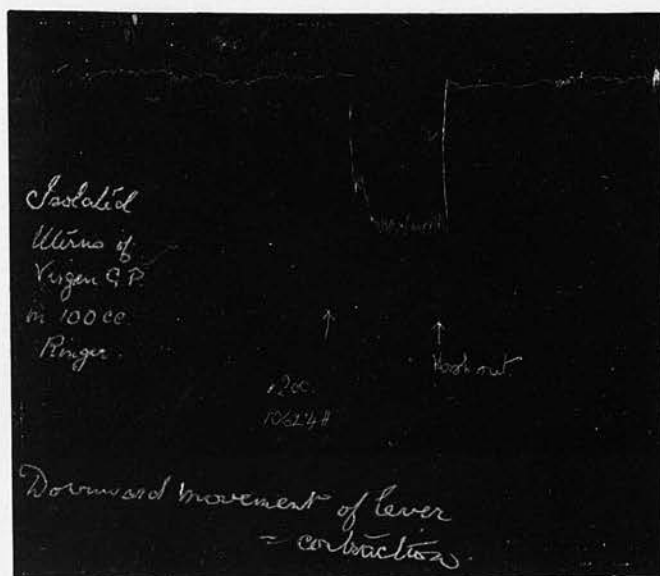 Isolated
Uterus of
Virgin G.P.
in 100 cc
Ringer.
Wash out.
Downward movement of lever
= contraction.